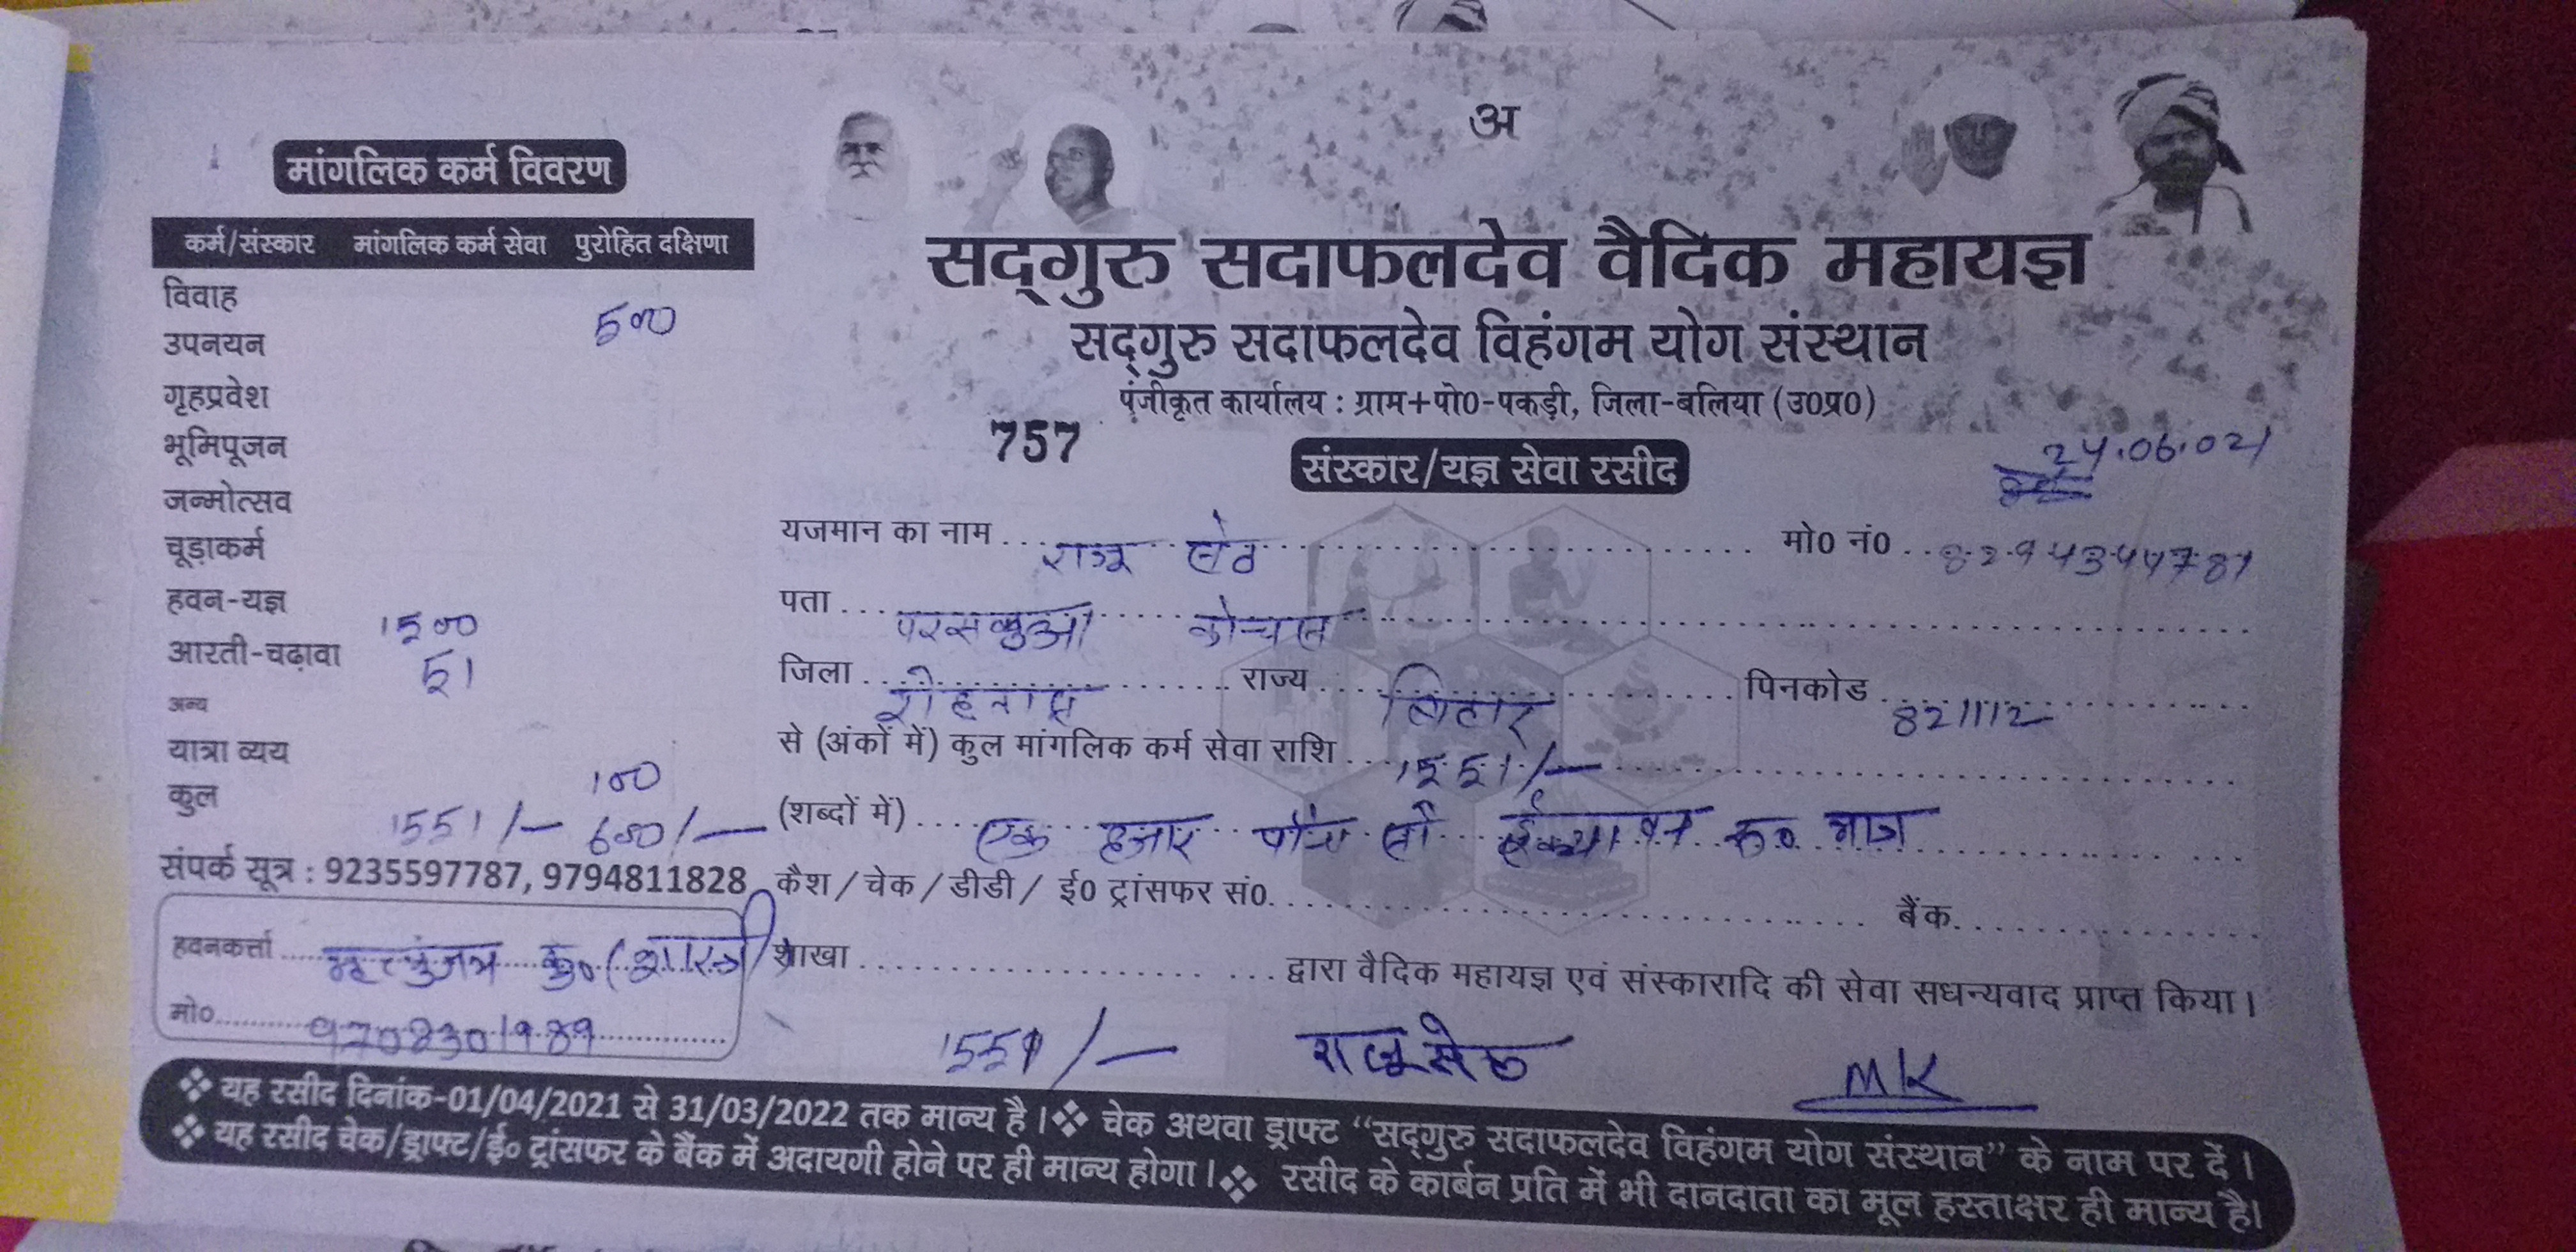 अ
मांगलिक कर्म विवरण
कर्म/संस्कार मांगलिक कर्म सेवा पुरोहित दक्षिणा
विवाह
500
उपनयन
गृहप्रवेश
भूमिपूजन
जन्मोत्सव
चूड़ाकर्म
हवन-यज्ञ
1500
आरती-चढ़ावा
51
अन्य
यात्रा व्यय
100
कुल
1551/- 600/-
संपर्क सूत्र : 9235597787, 9794811828
हवनकर्त्ता मृत्युंजय कु० (शास्त्री)
मो० 9708301989
सद्गुरु सदाफलदेव वैदिक महायज्ञ
सद्गुरु सदाफलदेव विहंगम योग संस्थान
पंजीकृत कार्यालय : ग्राम+पो0-पकड़ी, जिला-बलिया (उ0प्र0)
757
संस्कार/यज्ञ सेवा रसीद
24.06.021
यजमान का नाम राजू सेठ मो0 नं0 8294344781
पता कोचस
जिला रोहतास राज्य बिहार पिनकोड 821112
से (अंकों में) कुल मांगलिक कर्म सेवा राशि 1551/-
(शब्दों में) एक हजार पाँच सौ ईक्यावन रू० मात्र
कैश / चेक / डीडी / ई0 ट्रांसफर सं0 बैंक
शाखा द्वारा वैदिक महायज्ञ एवं संस्कारादि की सेवा सधन्यवाद प्राप्त किया।
1551/- राजू सेठ MK
❖ यह रसीद दिनांक-01/04/2021 से 31/03/2022 तक मान्य है। ❖ चेक अथवा ड्राफ्ट “सद्गुरु सदाफलदेव विहंगम योग संस्थान” के नाम पर दें।
❖ यह रसीद चेक/ड्राफ्ट/ई० ट्रांसफर के बैंक में अदायगी होने पर ही मान्य होगा। ❖ रसीद के कार्बन प्रति में भी दानदाता का मूल हस्ताक्षर ही मान्य है।